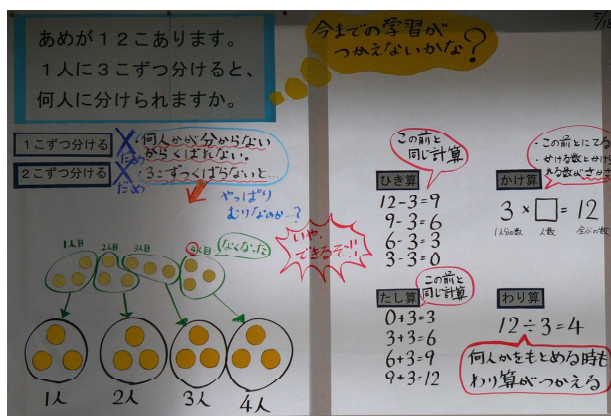 あめが12こあります。
1人に3こずつ分けると、
何人に分けられますか。
今までの学習が
つかえないかな?
1こずつ分ける
だめ
何人かが分からない
からくばれない。
2こずつ分ける
だめ
・3こずつくばらないと…
やっぱり
むりなのか…?
いや、
できるぞ!!
1人目
2人目
3人目
4人目
なくなった
1人
2人
3人
4人
この前と
同じ計算
ひき算
12-3=9
9-3=6
6-3=3
3-3=0
この前と
同じ計算
たし算
0+3=3
3+3=6
6+3=9
9+3=12
・この前とにてる
・かける数とかけ
れる数がさかさ
かけ算
3×□=12
1人分の数
人数
全ぶの数
わり算
12÷3=4
何人かをもとめる時も
わり算がつかえる